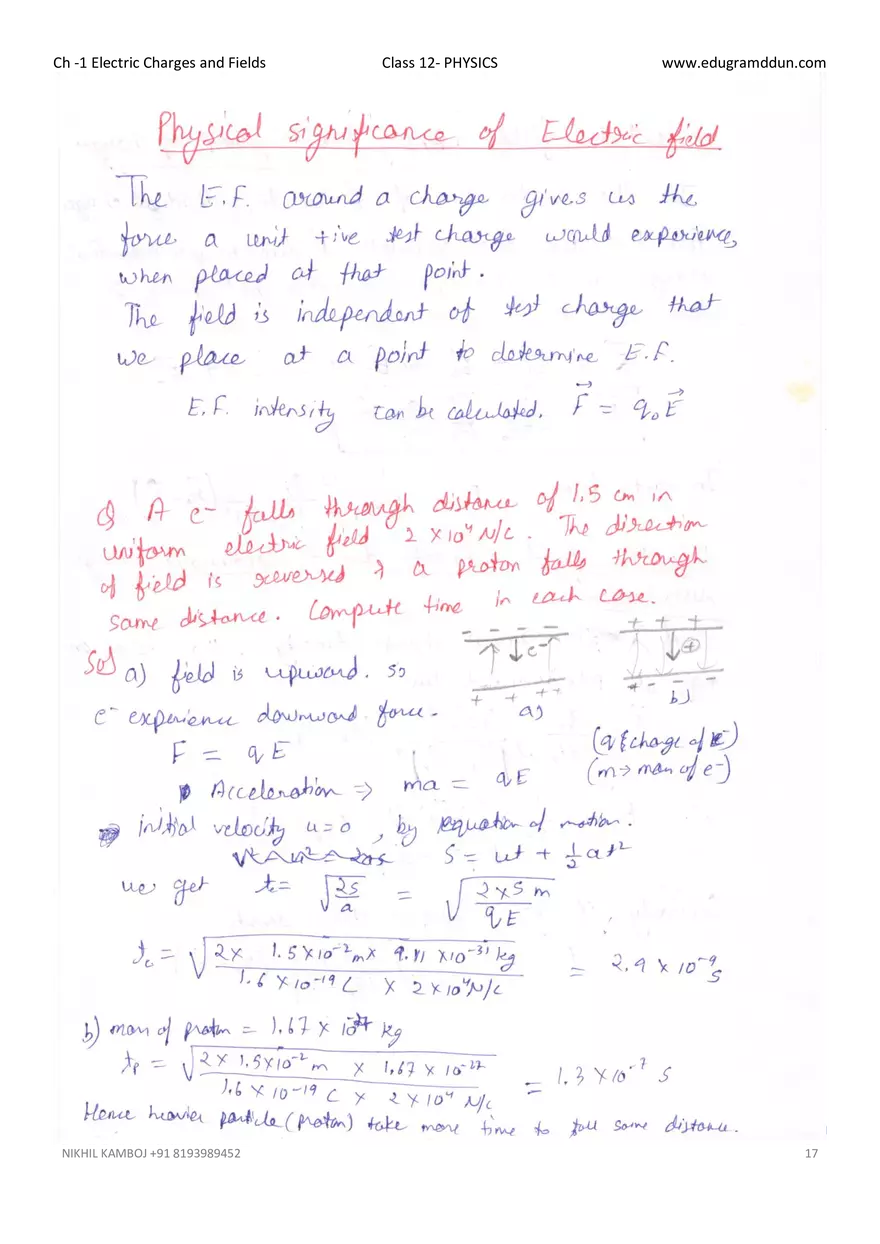 Ch -1 Electric Charges and Fields Class 12- PHYSICS www.edugramddun.com
Physical significance of Electric field
The E.F. around a charge gives us the
force a unit +ive test charge would experience,
when placed at that point.
The field is independent of test charge that
we place at a point to determine E.F.
E.F. intensity can be calculated. F⃗ = q₀E⃗
Q A e⁻ falls through distance of 1.5 cm in
uniform electric field 2 × 10⁴ N/C. The direction
of field is reversed & a proton falls through
same distance. Compute time in each case.
- - - - + + +
↑ ↓e⁻ ↑ ↓⊕
+ + ++ - - -
a) b)
Sol a) field is upward. so
e⁻ experience downward force.
F = qE (q charge of e⁻)
Acceleration ⇒ ma = qE (m → mass of e⁻)
initial velocity u=0, by equation of motion.
S = ut + ½at²
we get tₑ= √(2s/a) = √(2×S m/qE)
tₑ = √(2× 1.5×10⁻²m× 9.11 ×10⁻³¹kg / 1.6 ×10⁻¹⁹ C × 2×10⁴N/C) = 2.9 × 10⁻⁹ S
b) mass of proton = 1.67 × 10⁻²⁷ kg
tₚ = √(2 × 1.5×10⁻² m × 1.67 × 10⁻²⁷ / 1.6 × 10⁻¹⁹ C × 2 × 10⁴ N/C) = 1.3 ×10⁻⁷ S
Hence heavier particle (proton) take more time to fall same distance.
NIKHIL KAMBOJ +91 8193989452 17